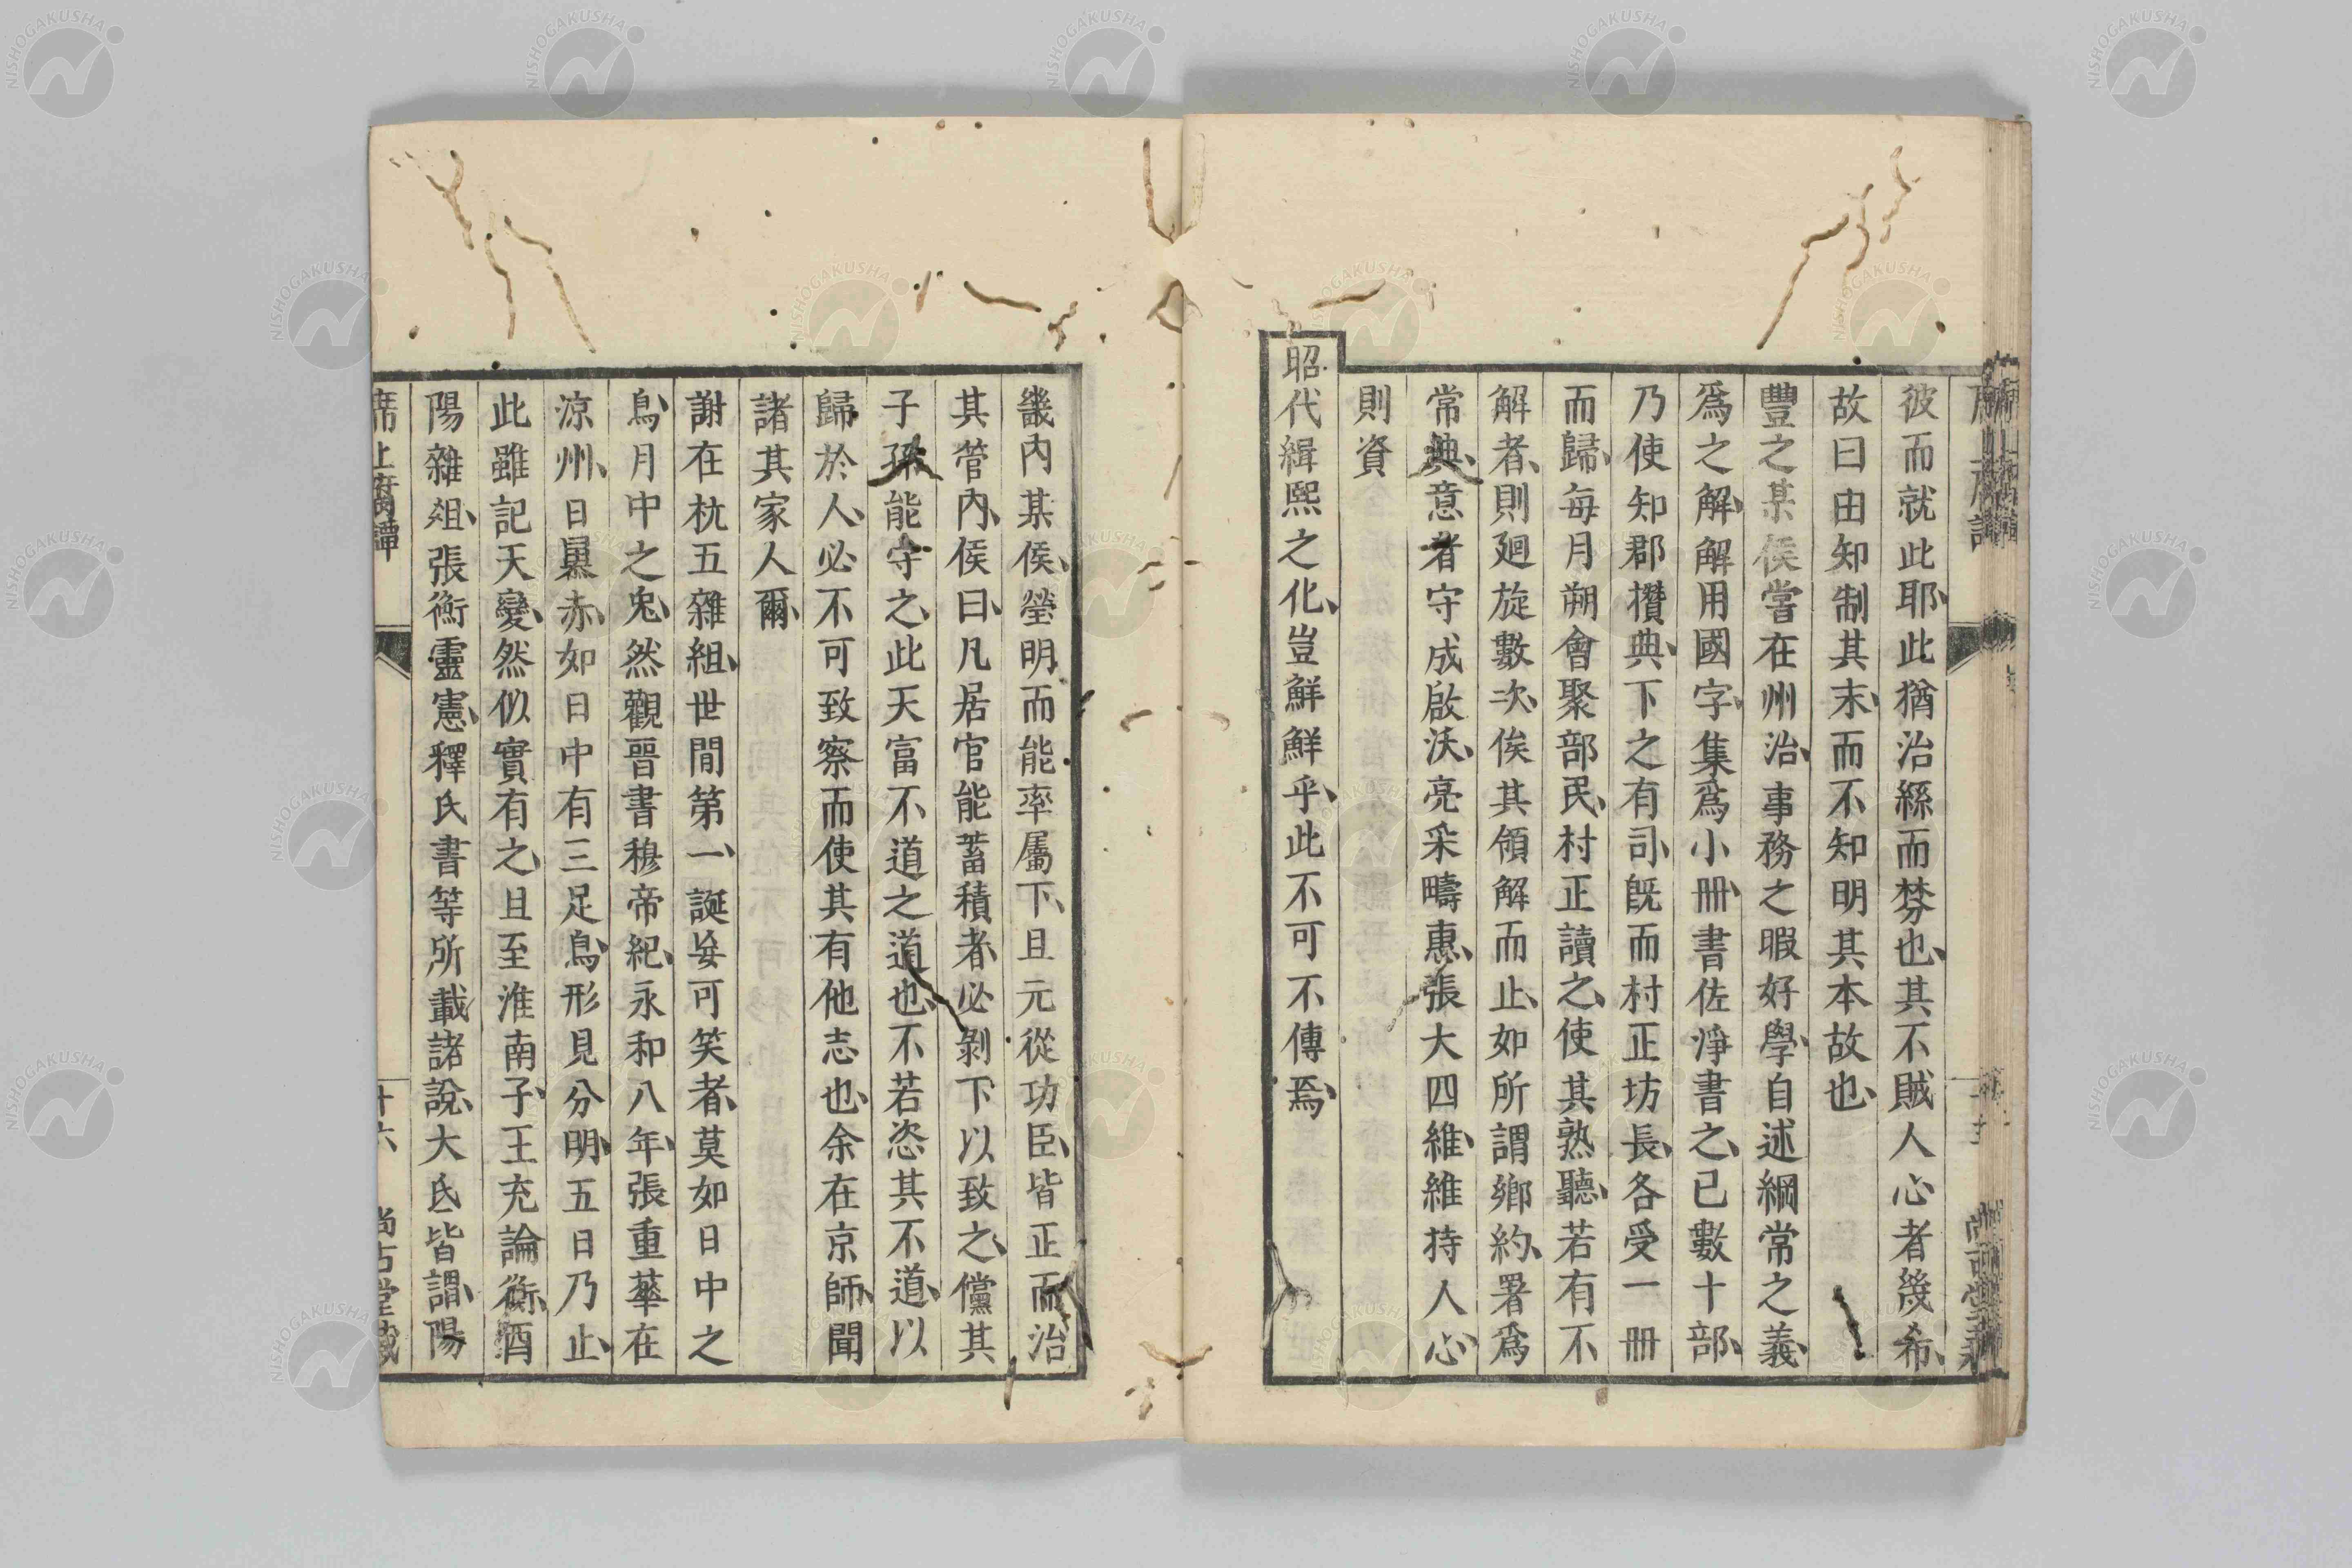 彼而就此耶、此猶治絲而棼也、其不賊人心者幾希、
故曰由知制其末、而不知明其本故也、
豐之某侯嘗在州治、事務之暇好學、自述綱常之義、
爲之解、解用國字、集爲小冊、書佐淨書之、已數十部、
乃使知郡攢典、下之有司、旣而村正坊長、各受一冊
而歸、每月朔會聚部民、村正讀之、使其熟聽、若有不
解者、則廻旋數次、俟其領解而止、如所謂鄉約、署爲
常典、意者守成啟沃、亮采疇惠、張大四維、維持人心、
則資
昭代緝熙之化、豈鮮鮮乎、此不可不傳焉、
畿內某侯、瑩明而能率屬下、且元從功臣、皆正而治
其管內、侯曰、凡居官能蓄積者、必剝下以致之、儻其
子孫能守之、此天富不道之道也、不若恣其不道、以
歸於人、必不可致察而使其有他志也、余在京師、聞
諸其家人爾、
謝在杭五雜組、世間第一、誕妄可笑者、莫如日中之
烏、月中之兔、然觀晉書穆帝紀、永和八年、張重華在
涼州、日㬥赤、如日中有三足烏、形見分明、五日乃止、
此雖記天變、然似實有之、且至淮南子、王充論衡、酉
陽雜俎、張衡靈憲、釋氏書等所載諸說、大氐皆謂、陽
席上腐譚
十六
尚古堂藏
NISHOGAKUSHA